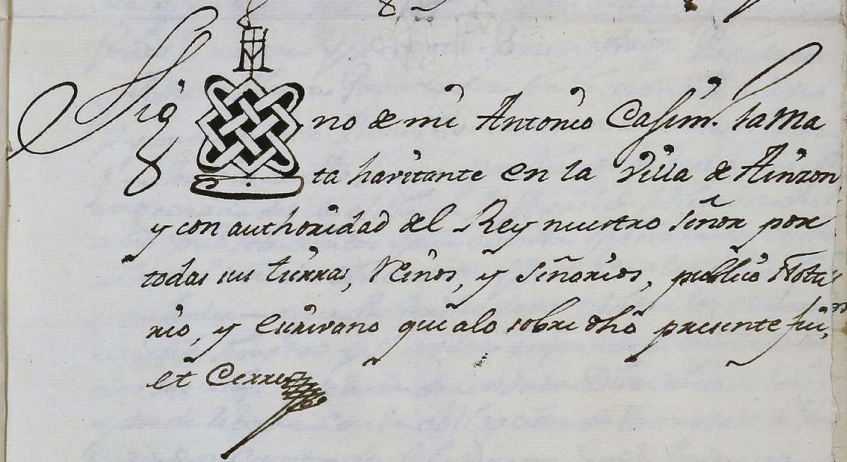 Sig no de mi Antonio Casim.º Lama
ta havitante en la Villa de Ainzon
y con authoridad del Rey nuestro Señor por
todas sus tierras, Reinos, y Señorios, publico Nota
rio, y escrivano que alo sobre dho presente fui,
et Cerre